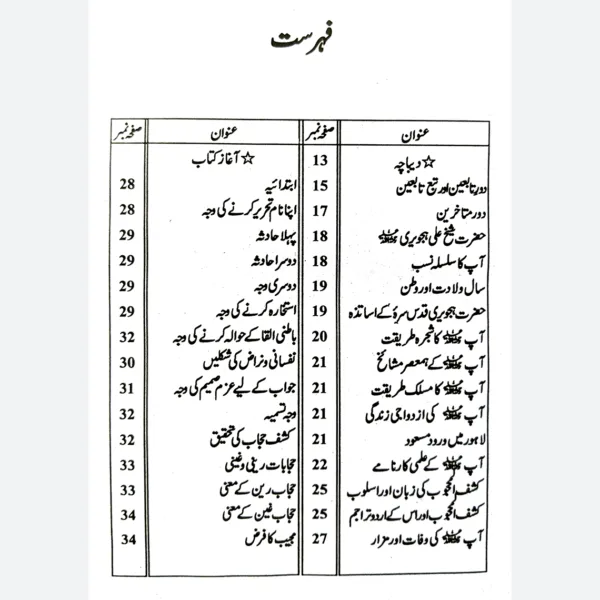 فہرست
عنوان صفحہ نمبر
☆ دیباچہ 13
دور تابعین اور تبع تابعین 15
دور متاخرین 17
حضرت شیخ علی ہجویری رحمۃ اللہ علیہ 18
آپ کا سلسلہ نسب 18
سال ولادت اور وطن 19
حضرت ہجویری قدس سرہٗ کے اساتذہ 19
آپ رحمۃ اللہ علیہ کا شجرہ طریقت 20
آپ رحمۃ اللہ علیہ کے ہمعصر مشائخ 21
آپ رحمۃ اللہ علیہ کا مسلک طریقت 21
آپ رحمۃ اللہ علیہ کی ازدواجی زندگی 21
لاہور میں ورود مسعود 21
آپ رحمۃ اللہ علیہ کے علمی کارنامے 22
کشف المحجوب کی زبان اور اسلوب 25
کشف المحجوب اور اس کے اردو تراجم 25
آپ رحمۃ اللہ علیہ کی وفات اور مزار 27
عنوان صفحہ نمبر
☆ آغاز کتاب
ابتدائیہ 28
اپنا نام تحریر کرنے کی وجہ 28
پہلا حادثہ 29
دوسرا حادثہ 29
دوسری وجہ 29
استخارہ کرنے کی وجہ 29
باطنی القا کے حوالہ کرنے کی وجہ 32
نفسانی و نراض کی شکلیں 30
جواب کے لیے عزم صمیم کی وجہ 31
وجہ تسمیہ 32
کشف حجاب کی تحقیق 32
حجابات رینی و غینی 33
حجاب رین کے معنی 33
حجاب غین کے معنی 34
مجیب کا فرض 34